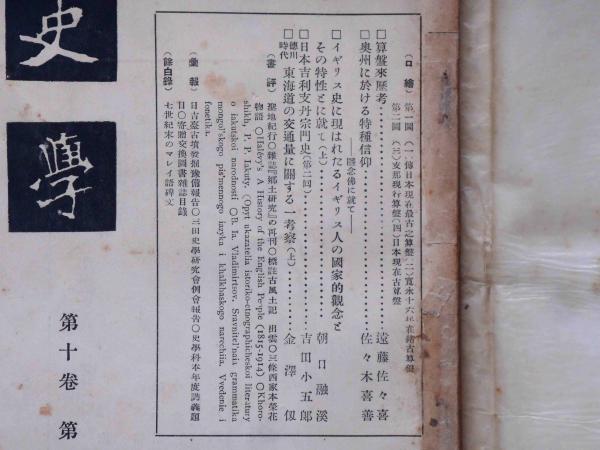 史
學
第十卷 第
(口繪) 第一圖 (一)傳日本現在最古之算盤(二)寬永十六
第二圖 (三)支那現行算盤(四)日本現在古算盤
□算盤來歷考 遠藤佐々喜
□奧州に於ける特種信仰 佐々木喜善
——隱念佛に就て——
□イギリス史に現はれたるイギリス人の國家的觀念と
その特性とに就て(上) 朝日融溪
□日本吉利支丹宗門史(第二回) 吉田小五郎
□德川時代 東海道の交通量に關する一考察(上) 金澤
(書評) 聖地紀行〇雜誌『鄉土研究』の再刊〇標註古風土記 出雲〇三條西家本榮花
物語 〇Halévy's A History of the English People (1815-1914) 〇Khoro-
shikh, P. P. Iakuty. (Opyt ukazatelia istoriko-etnograficheskoi literatury
o iakutskoi narodnosti 〇B. Ia. Vladimirtsov, Sravnitel'naia grammatika
mongol'skogo pis'mennogo iazyka i khalkhaskogo narechiia. Vvedenie i
fonetika.
(彙報) 日吉臺古墳發掘豫備報告〇三田史學研究會例會報告〇史學科本年度講義題
目〇寄贈交換圖書雜誌目錄
(餘白錄) 七世紀末のマレイ語碑文